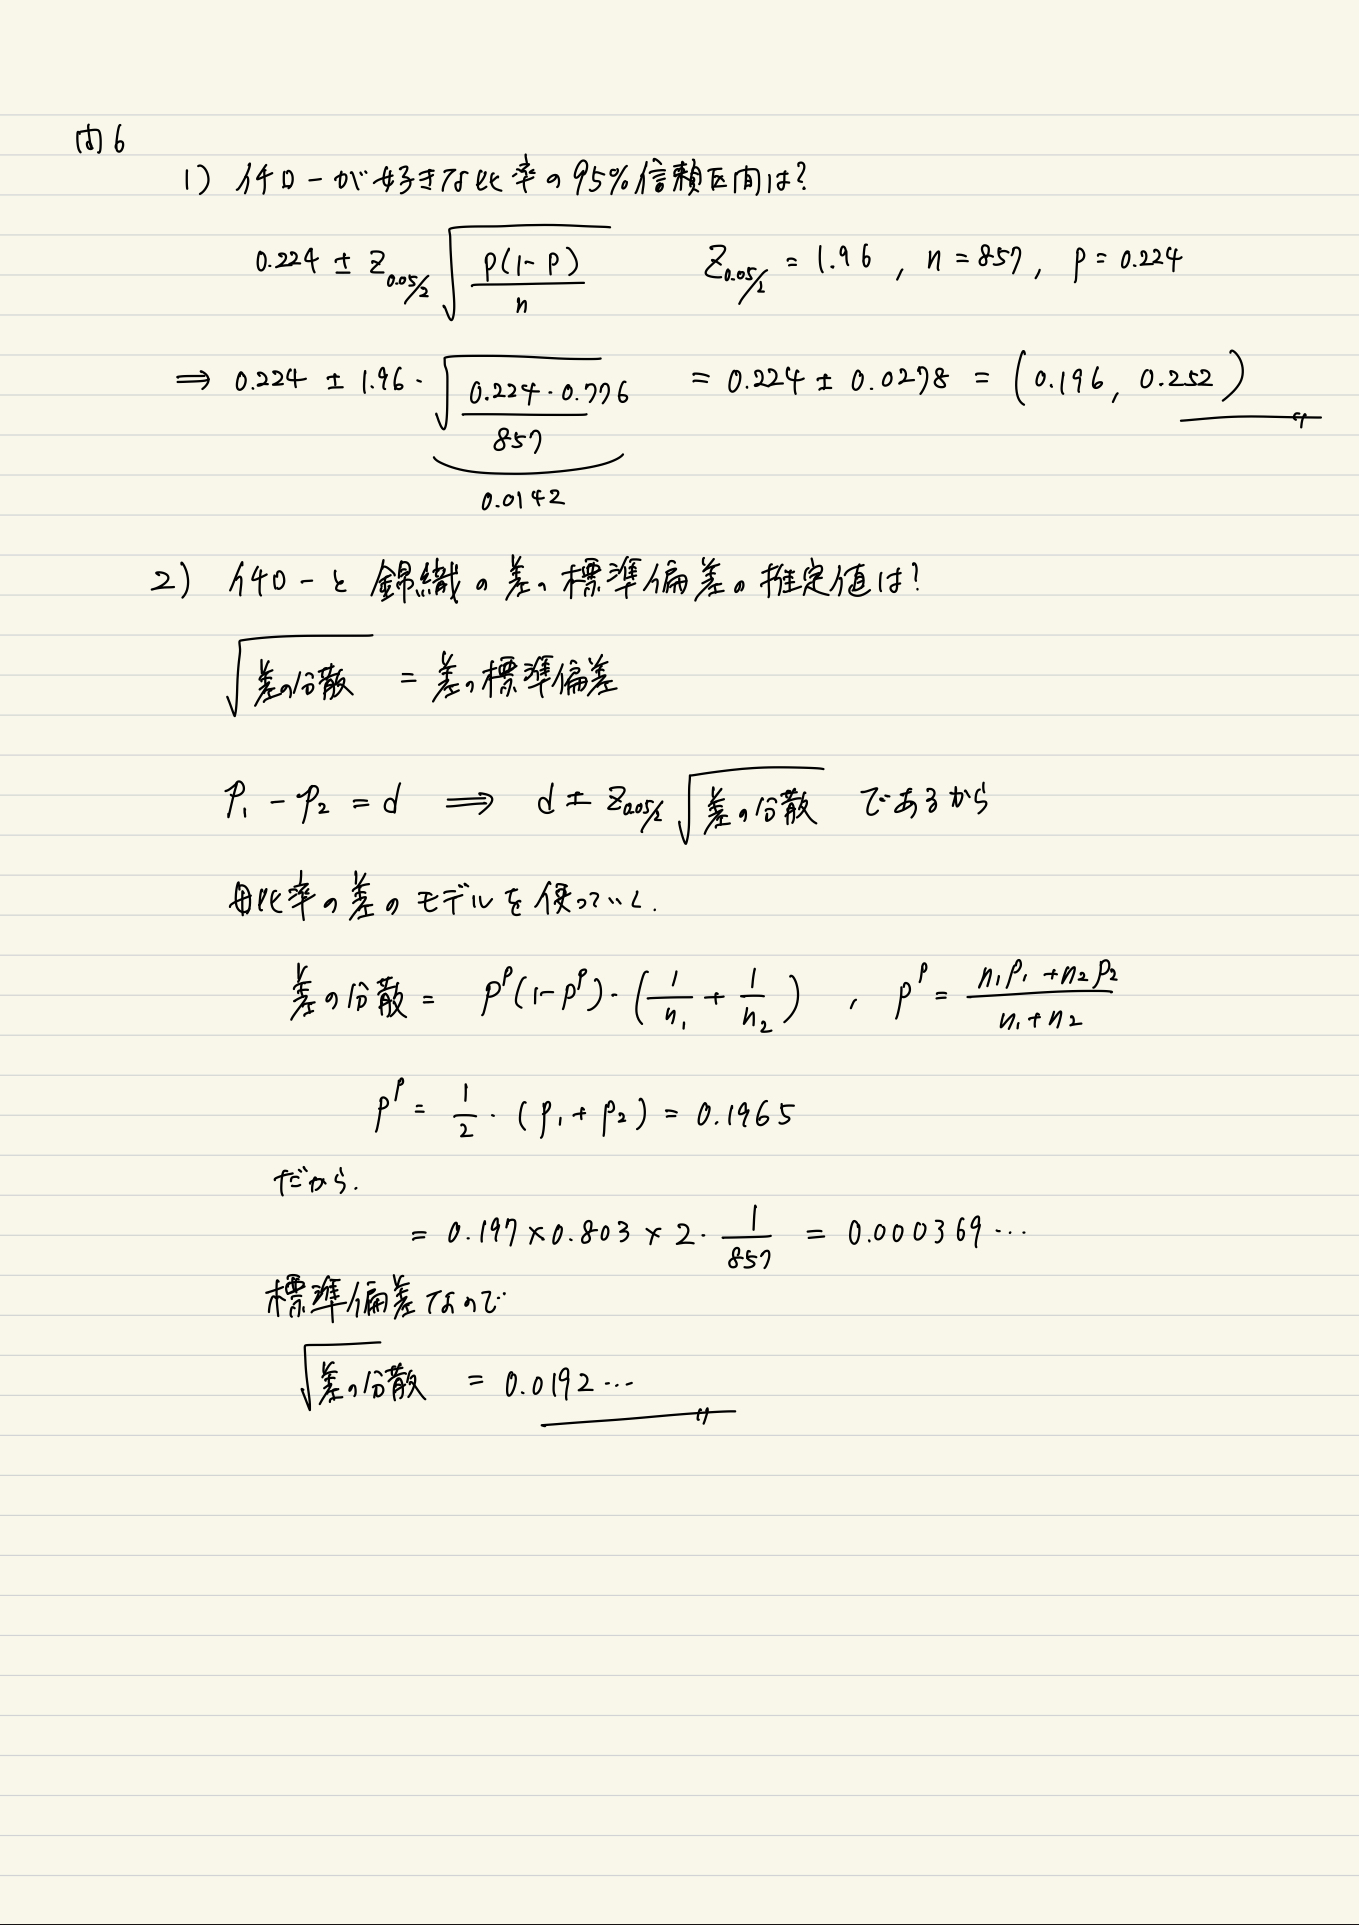 問6
1) イチローが好きな比率の95%信頼区間は?
0.224 ± Z_{0.05/2} √(p(1-p)/n)  Z_{0.05/2} = 1.96 , n = 857 , p = 0.224
⇒ 0.224 ± 1.96 · √(0.224 · 0.776/857) = 0.224 ± 0.0278 = (0.196, 0.252)
0.0142
2) イチローと錦織の差の標準偏差の推定値は?
√差の分散 = 差の標準偏差
P₁ - P₂ = d ⇒ d ± Z_{0.05/2} √差の分散 であるから
母比率の差のモデルを使っていく.
差の分散 = P^P(1-P^P) · (1/n₁ + 1/n₂) , P^P = (n₁P₁ + n₂P₂)/(n₁ + n₂)
P^P = 1/2 · (P₁ + P₂) = 0.1965
だから.
= 0.197 × 0.803 × 2 · 1/857 = 0.000369…
標準偏差なので
√差の分散 = 0.0192…